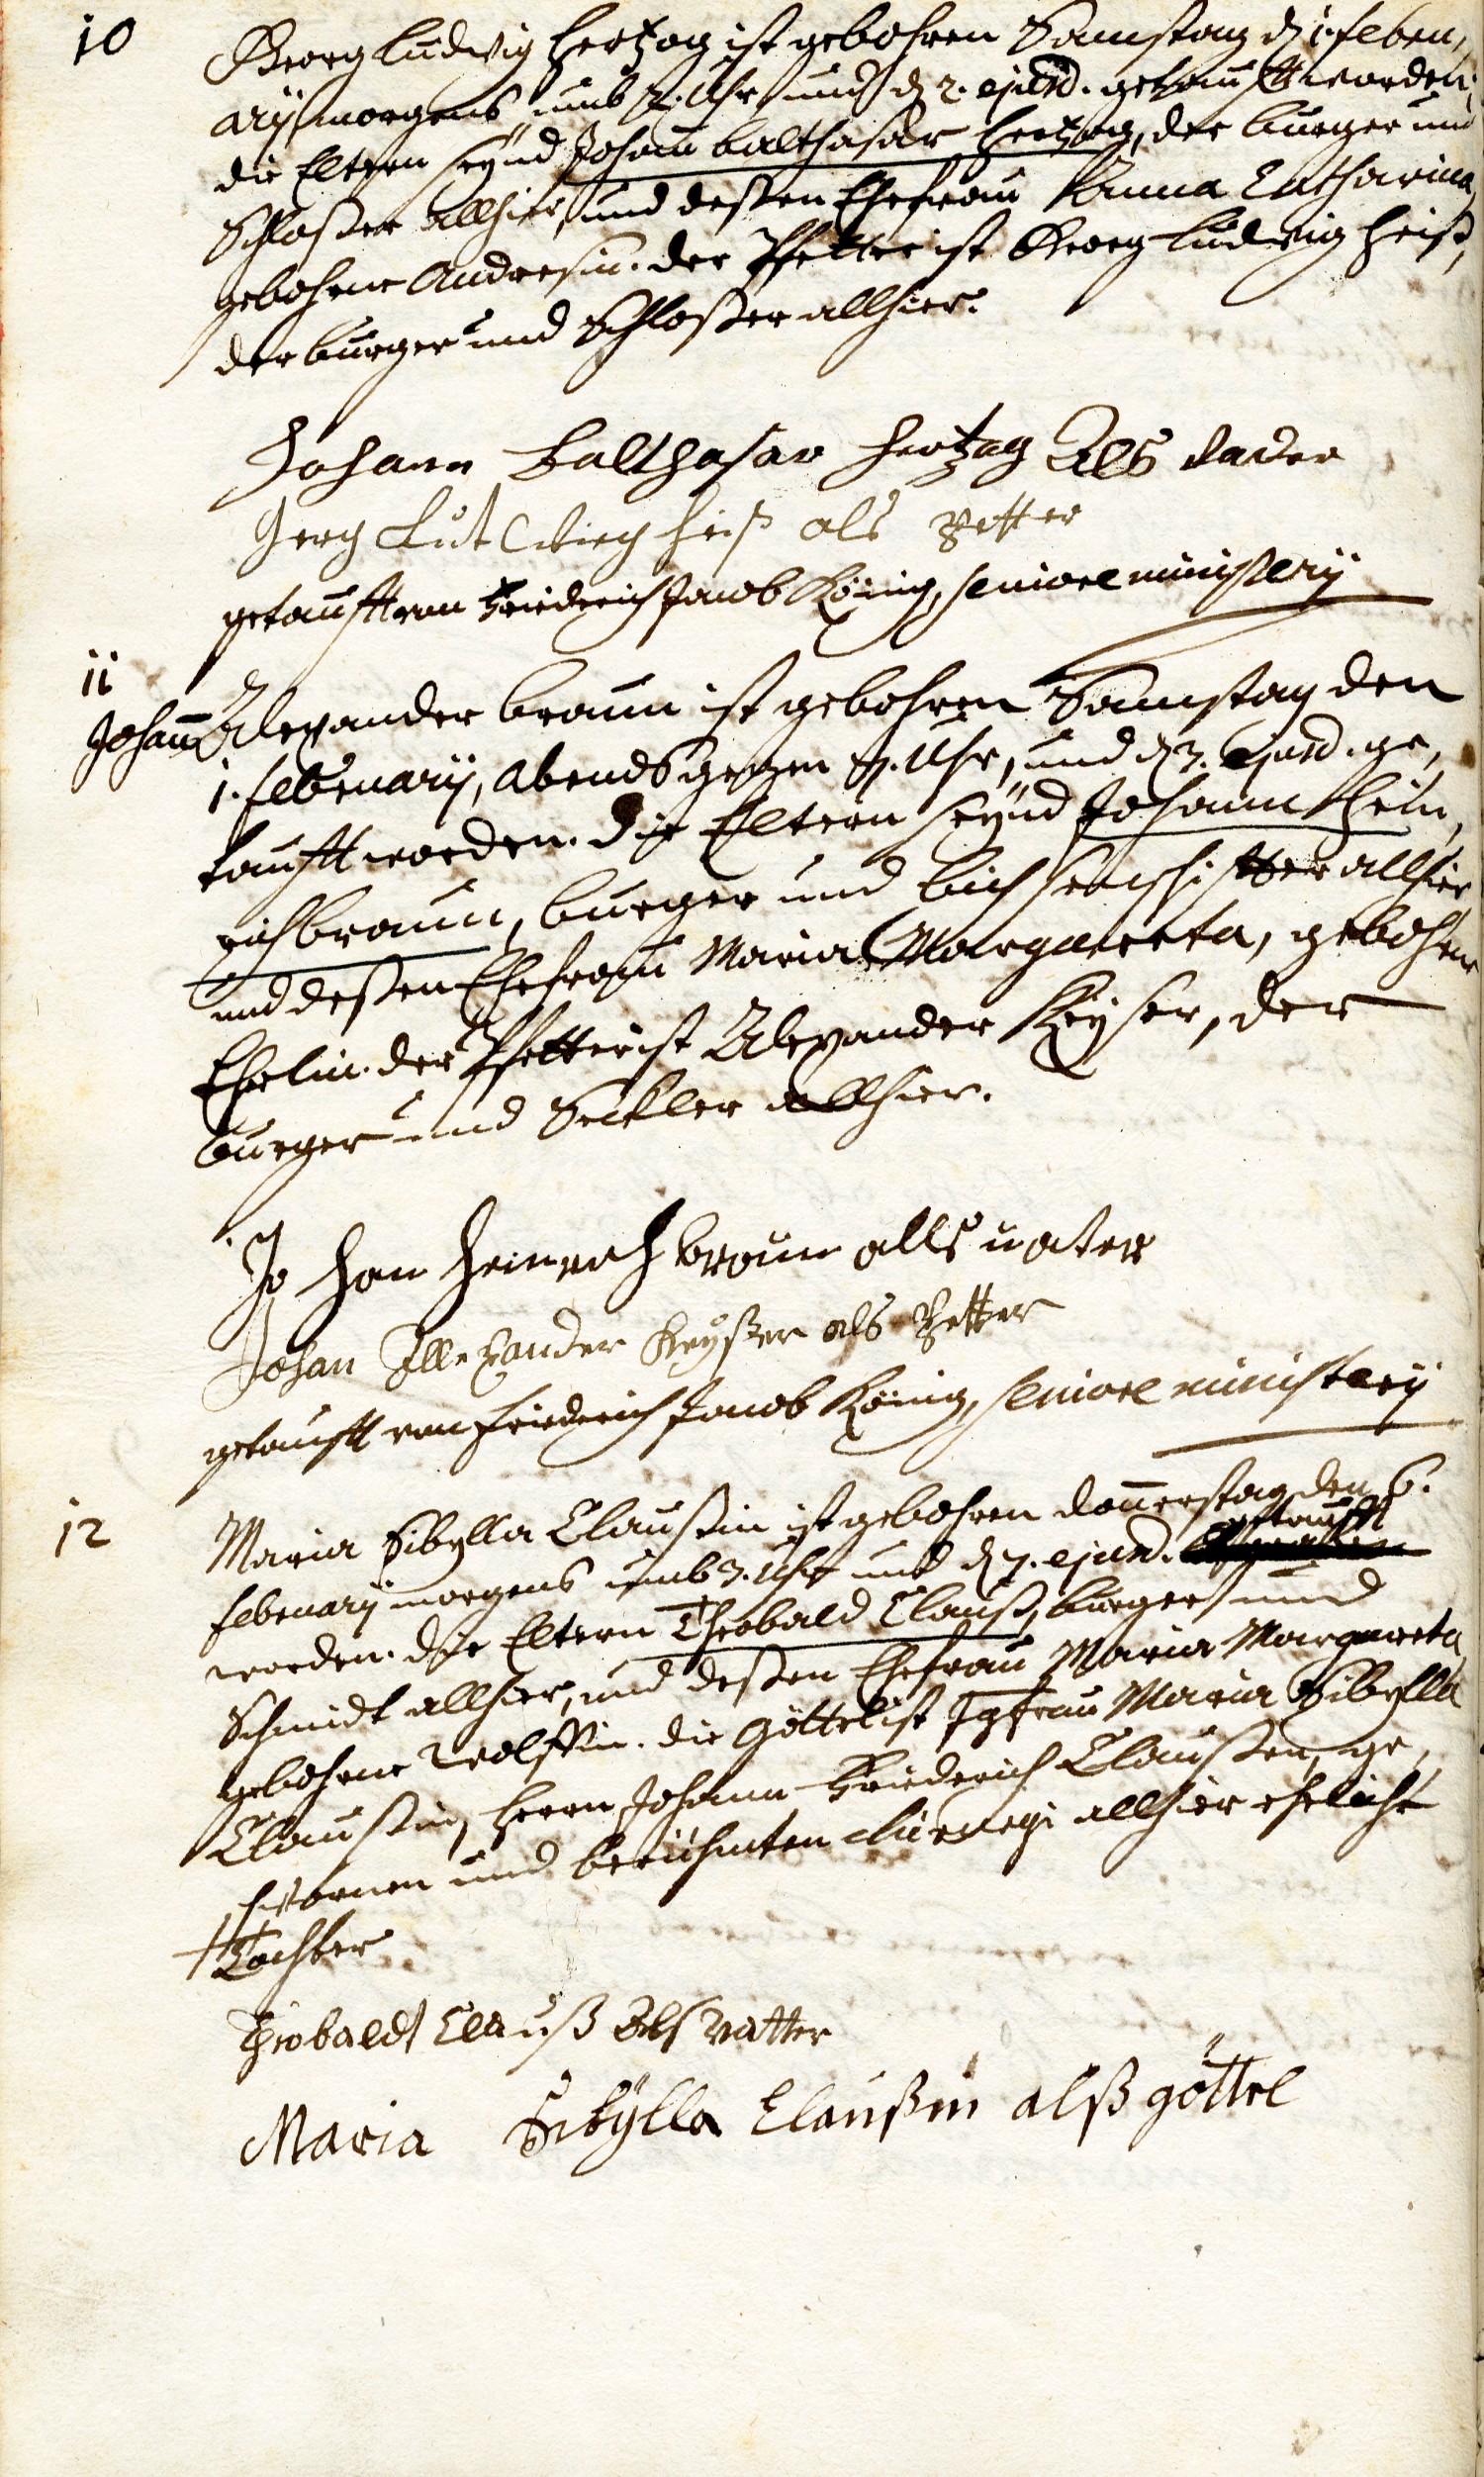 10
Georg Ludwig Hertzog ist gebohren Samstag d. 1. Febru,
arÿ morgens umb 2. Uhr, und d. 2. ejusd. getaufft worden,
die Eltern seynd Johann Balthasar Hertzog, der burger und
Schlosser allhier, und dessen Ehefrau Anna Catharina
gebohrne Andresin. der Pfetter ist Georg Ludwig Heiß,
der burger und Schlosser allhier.
Johann Balthasar Hertzog Als Vader
Gerg Lutwieg Heiß als Petter
getaufft von Friederich Jacob König, seniore ministerÿ
11
Johann Alexander Braun ist gebohren Samstag den
1. Februarÿ, abends gegen 7. Uhr, und d. 3. ejusd. ge,
taufft worden. Die Eltern seynd Johann Hein,
rich braun, burger und allhier
und dessen Ehefrau Maria Margareta, gebohrne
Ehrlin. der Pfetter ist Alexander Keyser, der
burger und Seckler allhier.
Jo han Heinrich braun alls vater
Johan Allexander Keyßer als Petter
getaufft von Friederich Jacob König, seniore ministerÿ
12
Maria Sibylla Claussin ist gebohren donnerstag den 6.
Februarÿ morgens umb 3. Uhr und d. 7. ejusd. getaufft
worden. die Eltern Theobald Clauß, burger und
Schmidt allhier, und dessen Ehefrau Maria Margareta
gebohrne Wolffin. die Göttel ist Jgfrau Maria Sibylla
Claussin, Herrn Johann Friederich Claussen, ge,
schwornen und berühmten chirurgi allhier eheliche
Tochter
Theobaldt Clauß Als Vatter
Maria Sibÿlla Claußin alß göttel